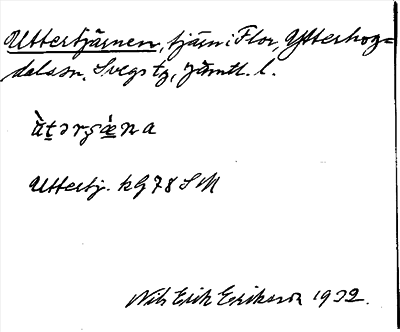 Uttertjärnen, tjärn i Flor, Ytterhog=
dals sn, Svegs tg, Jämtl. l.
ùtərʂǽna
Uttertj. kG 78 SM
Nils Erik Eriksson 1932.